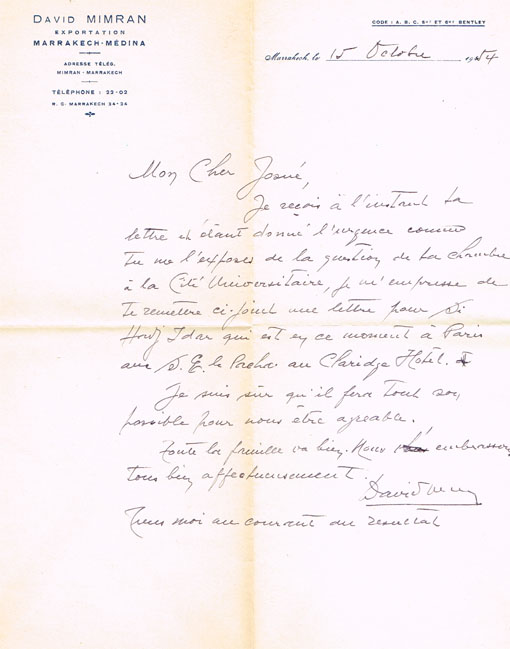 DAVID MIMRAN
EXPORTATION
MARRAKECH-MÉDINA
ADRESSE TÉLÉG.
MIMRAN - MARRAKECH
TÉLÉPHONE : 22-02
R. C. MARRAKECH 24-26
CODE : A. B. C. 5me ET 6me BENTLEY
Marrakech, le 15 Octobre 1954
Mon Cher Josué,
Je reçois à l'instant ta
lettre et étant donné l'urgence comme
tu me l'exposes de la question de ta chambre
à la Cité Universitaire, je m'empresse de
te remettre ci-joint une lettre pour Si
Hadj Idar qui est en ce moment à Paris
avec S. E. le Pacha au Claridge Hôtel.
Je suis sûr qu'il fera tout son
possible pour nous être agréable.
Toute la famille va bien. Nous embrassons
tous bien affectueusement
David
Tiens moi au courant du résultat